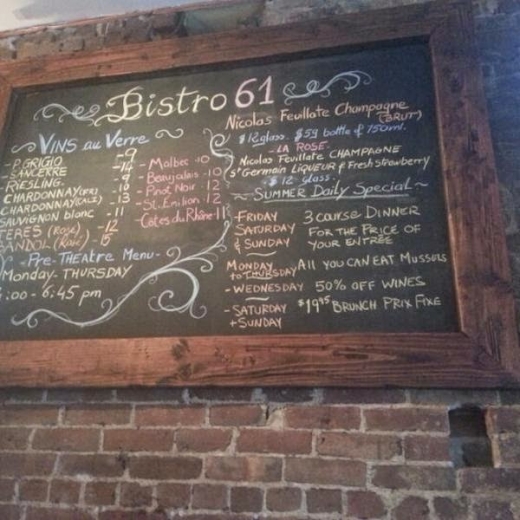 Bistro 61
VINS au Verre
- P. GRIGIO - 9
- SANCERRE
RIESLING
CHARDONNAY
CHARDONNAY - 13
SAUVIGNON blanc - 11
(Rosé) - 12
BANDOL (Rosé) - 15
- Malbec - 10
- Beaujolais - 10
- Pinot Noir - 12
- St. Emilion 12
Côtes du Rhône 11
- Pre-THEAtre Menu -
Monday - THURSDAY
:00 - 6:45 pm
Nicolas Feuillate Champagne
(BRUT)
glass. $59 bottle of 750ml.
- LA ROSE -
Nicolas Feuillate CHAMPAGNE
St Germain LIQUEUR & Fresh strawberry
$12 glass.
~ SUMMER DAily Special ~
- FRIDAY 3 course DINNER
SATURDAY FOR the PRICE OF
& SUNDAY YOUR ENTRÉE
MONDAY All YOU CAN EAT MUSSELS
to THURSDAY
- WEDNESDAY 50% OFF WINES
- SATURDAY $19.95 BRUNCH PRIX FIXE
+ SUNDAY